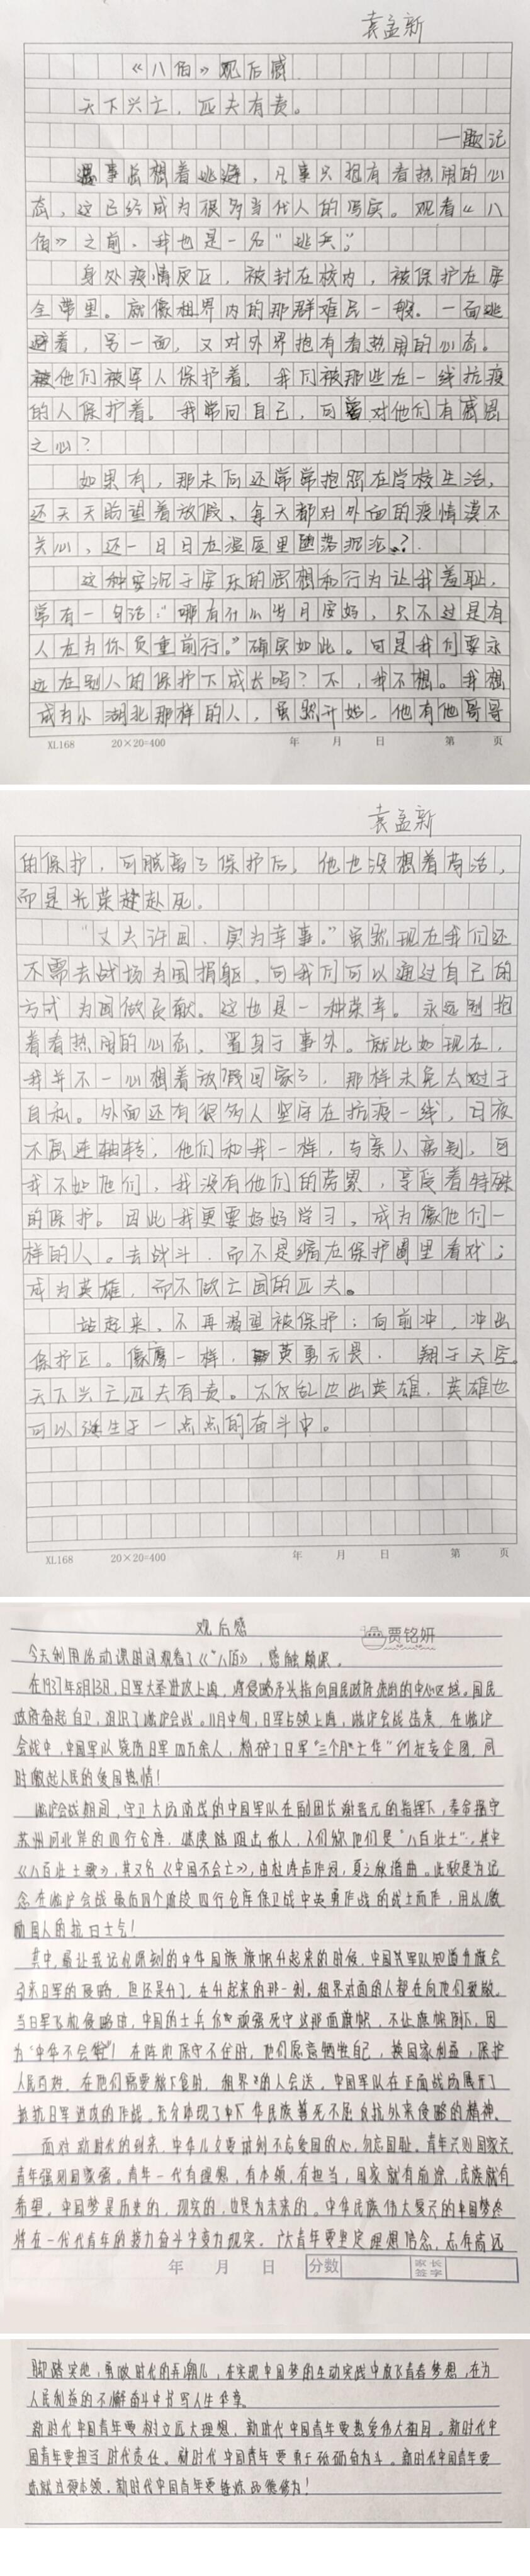 袁孟新
《八佰》观后感
天下兴亡，匹夫有责。
—题记
遇事总想着逃避，凡事只抱有看热闹的心
态，这已经成为很多当代人的写实。观看《八
佰》之前，我也是一名“逃兵”。
身处疫情灾区，被封在校内，被保护在安
全带里。就像租界内的那群难民一般。一面逃
避着，另一面，又对外界抱有看热闹的心态。
他们被军人保护着，我们被那些在一线抗疫
的人保护着。我常问自己，可曾对他们有感恩
之心？
如果有，那未何还常常抱怨在学校生活，
还天天盼望着放假、每天都对外面的疫情漠不
关心，还一日日在温室里堕落沉沦？
这种安沉于安乐的思想和行为让我羞耻，
常有一句话：“哪有什么岁月安好，只不过是有
人在为你负重前行。”确实如此。可是我们要永
远在别人的保护下成长吗？不，我不想。我想
成为小湖北那样的人，虽然开始，他有他哥哥
XL168 20×20=400 年 月 日 第 页
袁孟新
的保护，可脱离了保护后，他也没想着苟活，
而是光荣赴死。
“丈夫许国，实为幸事。”虽然现在我们还
不需去战场为国捐躯，可我们可以通过自己的
方式为国做贡献。这也是一种荣幸。永远别抱
着看热闹的心态，置身于事外。就比如现在，
我并不一心想着放假回家了，那样未免太过于
自私。外面还有很多人坚守在抗疫一线，日夜
不息连轴转，他们和我一样，与亲人离别，可
我不如他们，我没有他们的劳累，享受着特殊
的保护。因此我更要好好学习，成为像他们一
样的人。去战斗，而不是缩在保护圈里看戏；
成为英雄，而不做亡国的匹夫。
站起来，不再渴望被保护；向前冲，冲出
保护区。像鹰一样，英勇无畏，翔于天空。
天下兴亡匹夫有责。不仅乱世出英雄，英雄也
可以诞生于一点点的奋斗中。
XL168 20×20=400 年 月 日 第 页
观后感
贾铭妍
今天利用活动课时间观看了《八佰》，感触颇深。
在1937年8月13日，日军大举进攻上海，将侵略矛头指向国民政府统治的中心区域，国民
政府奋起自卫，组织了淞沪会战。11月中旬，日军占领上海，淞沪会战结束，在淞沪
会战中，中国军队毙伤日军四万余人，粉碎了日军“三个月亡华”的狂妄企图，同
时激起人民的爱国热情！
淞沪会战期间，守卫大场防线的中国军队在副团长谢晋元的指挥下，奉命据守
苏州河北岸的四行仓库，继续阻击敌人，人们称他们是“八百壮士”，其中
《八百壮士歌》，其又名《中国不会亡》，由桂涛声作词，夏之秋谱曲。此歌是为纪
念在淞沪会战最后四个阶段四行仓库保卫战中英勇作战的战士而作，用以激
励国人的抗日士气！
其中，最让我记忆深刻的中华国族旗帜升起来的时候，中国共军队知道升旗会
引来日军的侵略，但还是升了，在升起来的那一刻，租界对面的人都在向他们致敬。
当日军飞机侵略时，中国的士兵们顽强死守这那面旗帜，不让旗帜倒下，因
为“中华不会倒”！在阵地保守不住时，他们愿意牺牲自己，换国家利益，保护
人民百姓，在他们需要粮食时，租界的人会送。中国军队在正面战场展开了
抵抗日军进攻的作战，充分体现了中华民族誓死不屈反抗外来侵略的精神。
面对新时代的到来，中华儿女要谨到不忘爱国的心，勿忘国耻。青年兴则国家兴
青年强则国家强。青年一代有理想，有本领，有担当，国家就有前途，民族就有
希望，中国梦是历史的，现实的，也是为未来的。中华民族伟大复兴的中国梦终
将在一代代青年的接力奋斗中变为现实。广大青年要坚定理想信念，志存高远
年 月 日 分数 家长签字
脚踏实地，勇做时代的弄潮儿，在实现中国梦的生动实践中放飞青春梦想，在为
人民利益的不懈奋斗中书写人生华章。
新时代中国青年要树立远大理想，新时代中国青年要热爱伟大祖国。新时代中
国青年要担当时代责任。新时代中国青年要勇于砥砺奋斗。新时代中国青年要
练就过硬本领，新时代中国青年要锤炼品德修为！